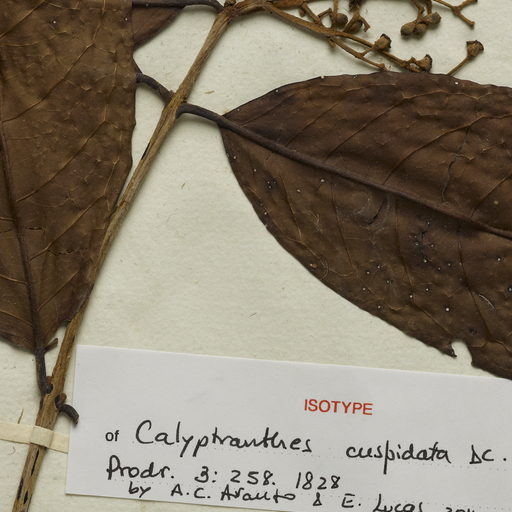 ISOTYPE
of Calyptranthes cuspidata DC.
Prodr. 3: 258. 1828
by A.C. Araujo & E. Lucas